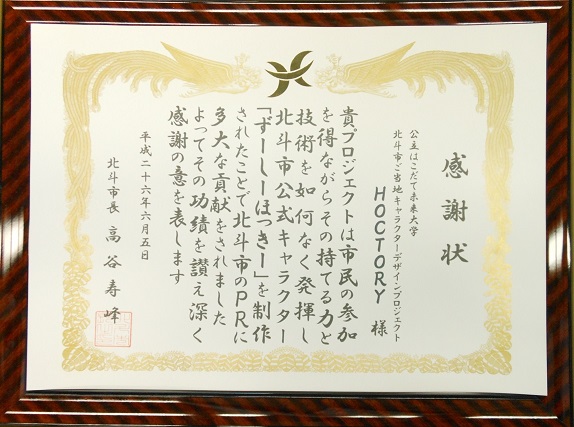 感謝状
公立はこだて未来大学
北斗市ご当地キャラクターデザインプロジェクト
HOCTORY 様
貴プロジェクトは市民の参加
を得ながらその持てる力と
技術を如何なく発揮し
北斗市公式キャラクター
「ずーしーほっきー」を制作
されたことで北斗市のPRに
多大な貢献をされました
よってその功績を讃え深く
感謝の意を表します
平成二十六年六月五日
北斗市長 高谷寿峰